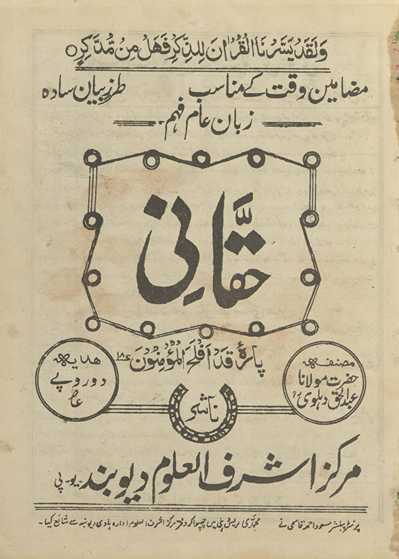 وَلَقَدْ يَسَّرْنَا الْقُرْآنَ لِلذِّكْرِ فَهَلْ مِنْ مُّدَّكِرٍ ○
مضامین وقت کے مناسب
طرز بیان سادہ
زبان عام فہم
حقّانی
پارۂ قَدْ اَفْلَحَ الْمُؤْمِنُوْنَ ۱۸
مصنفہ
حضرت مولانا
عبدالحق دہلوی رح
ھدیہ
دو روپے
ناشر
مرکز اشرف العلوم دیوبند۔ یو۔ پی
پرنٹر پبلشر مسعود احمد قاسمی نے محبوب پریس دہلی میں چھپوا کر دفتر مرکز اشرف العلوم ادارہ ہادی دیوبند سے شائع کیا۔